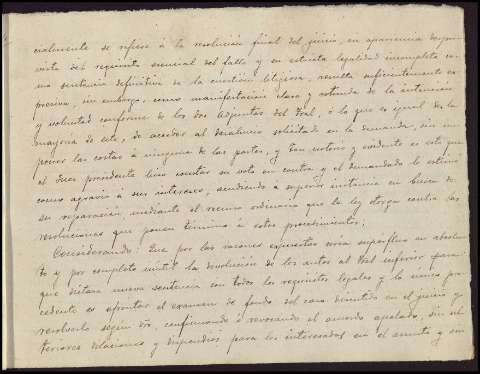 cialmente se refiere á la resolución final del juicio, en apariencia despro-
vista del requisito esencial del fallo y en estricta legalidad incompleta co-
mo sentencia definitiva de la cuestión litigiosa, resulta suficientemente ex-
presiva, sin embargo, como manifestación clara y rotunda de la intención
y voluntad conforme de los dos Adjuntos del Tral, ó lo que es igual de la
mayoria de este, de acceder al desahucio solicitado en la demanda, sin im-
poner las costas á ninguna de las partes, y tan notorio y evidente es esto que
el Juez presidente hizo constar su voto en contra y el demandado lo estimó
como agravio á sus intereses, acudiendo á superior instancia en busca de
su reparación, mediante el recurso ordinario que la ley otorga contra las
resoluciones que ponen término á estos procedimientos;
Considerando: Que por las razones expuestas seria superfluo en absolu-
to y por completo inutil la devolución de los autos al Tral inferior para
que dictara nueva sentencia con todos los requisitos legales y lo unico pro-
cedente es afrontar el examen de fondo del caso discutido en el juicio y
resolverlo según dro, confirmando ó revocando el acuerdo apelado, sin ul-
teriores dilaciones y dispendios para los interesados en el asunto y con